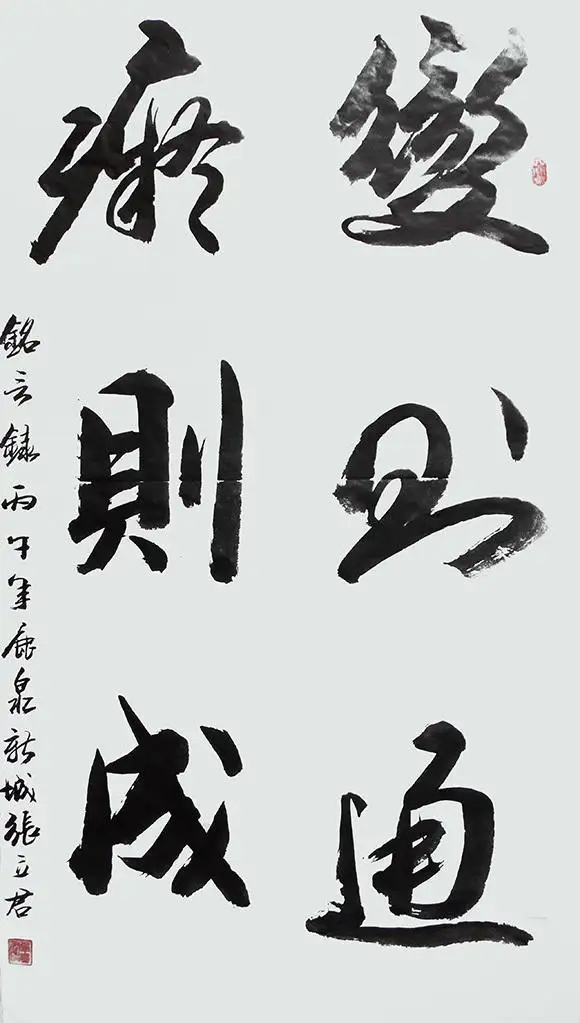 變則通
癡則成
銘言錄丙午年鹿泉新城張立君